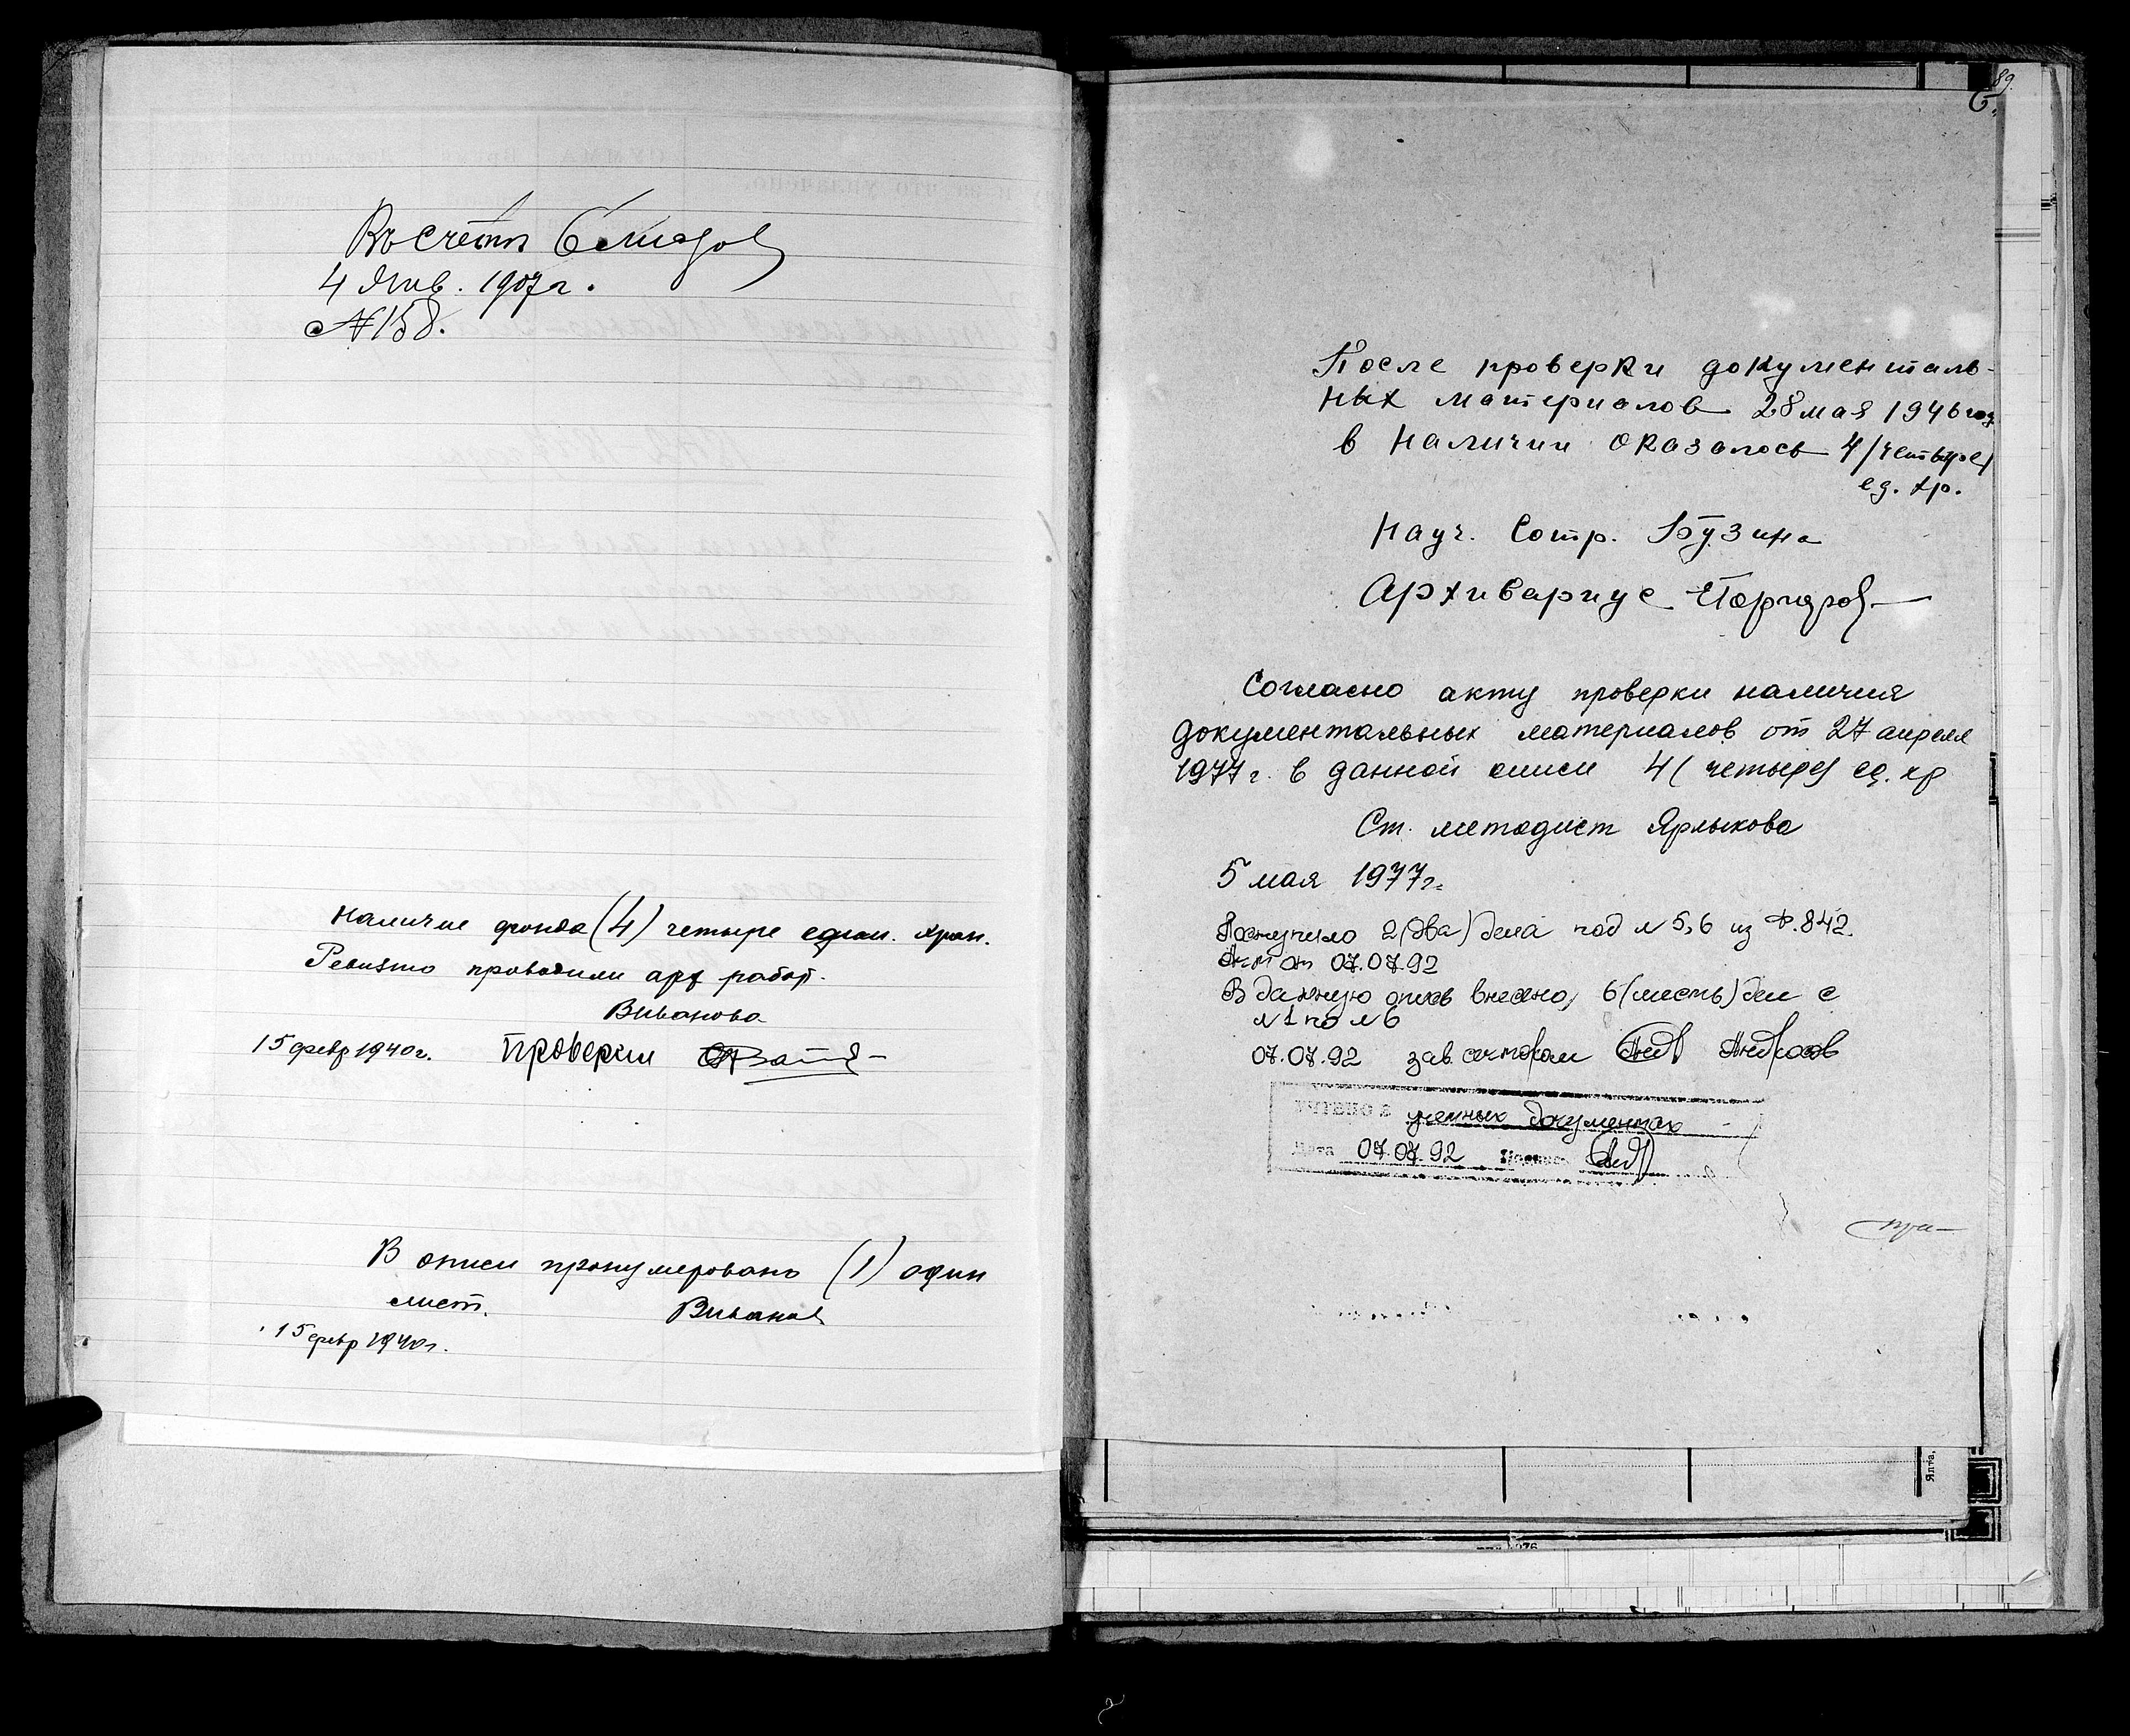 Въ счетъ
4 Янв. 1907 г.
№ 158.
Наличие фонда (4) четыре един. хран.
Ревизию проводили арх работ.
Виванова
15 февр 1940 г. Проверил
В описи пронумеровано (1) один
лист. Виванова
15 февр 1940 г.
89.
После проверки документаль-
ных материалов 28 мая 1946 год
в наличии оказалось 4 /четыре/
ед. хр.
Науч. Сотр. Бузина
Архивариус
Согласно акту проверки наличия
документальных материалов от 27 апреля
1977 г. в данной описи 4 (четыре) ед. хр
Ст. методист Ярлыкова
5 мая 1977 г.
Поступило 2 (два) дела под № 5, 6 из Ф. 842.
Акт от 07.07.92
В данную опись внесено 6 (шесть) дел с
№ 1 по № 6
07.07.92 зав. сектором Андросов
УЧТЕНО В учетных документах
Дата 07.07.92 Подпись
Ялта,